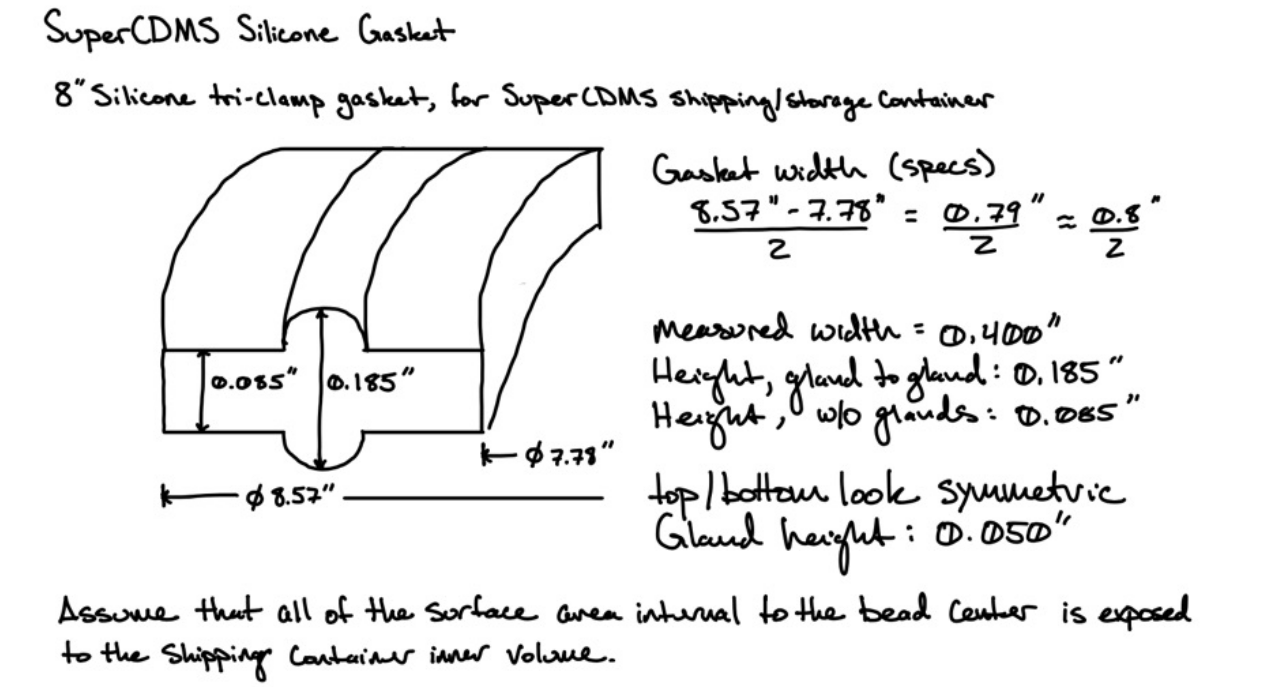 SuperCDMS Silicone Gasket
8" Silicone tri-clamp gasket, for SuperCDMS shipping/storage container
Gasket width (specs)
8.57" - 7.78" / 2 = 0.79" / 2 ≈ 0.8" / 2
Measured width = 0.400"
Height, gland to gland: 0.185"
Height, w/o glands: 0.085"
top/bottom look symmetric
Gland height: 0.050"
0.085"
0.185"
ø 7.78"
ø 8.57"
Assume that all of the surface area internal to the bead center is exposed
to the shipping container inner volume.